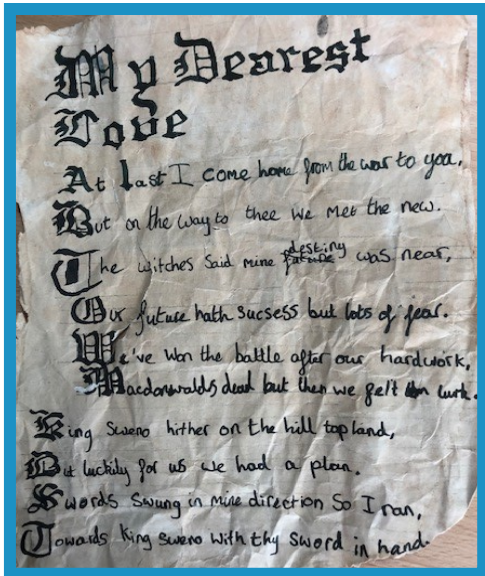 My Dearest
Love
At last I come home from the war to you,
But on the way to thee we met the new.
The witches said mine destiny was near,
Our future hath sucsess but lots of fear.
We've won the battle after our hardwork,
Macdonwalds dead but then we felt lurk.
King Sweno hither on the hill top land,
But luckily for us we had a plan.
Swords Swung in mine direction So I ran,
Towards King Sweno with thy sword in hand.